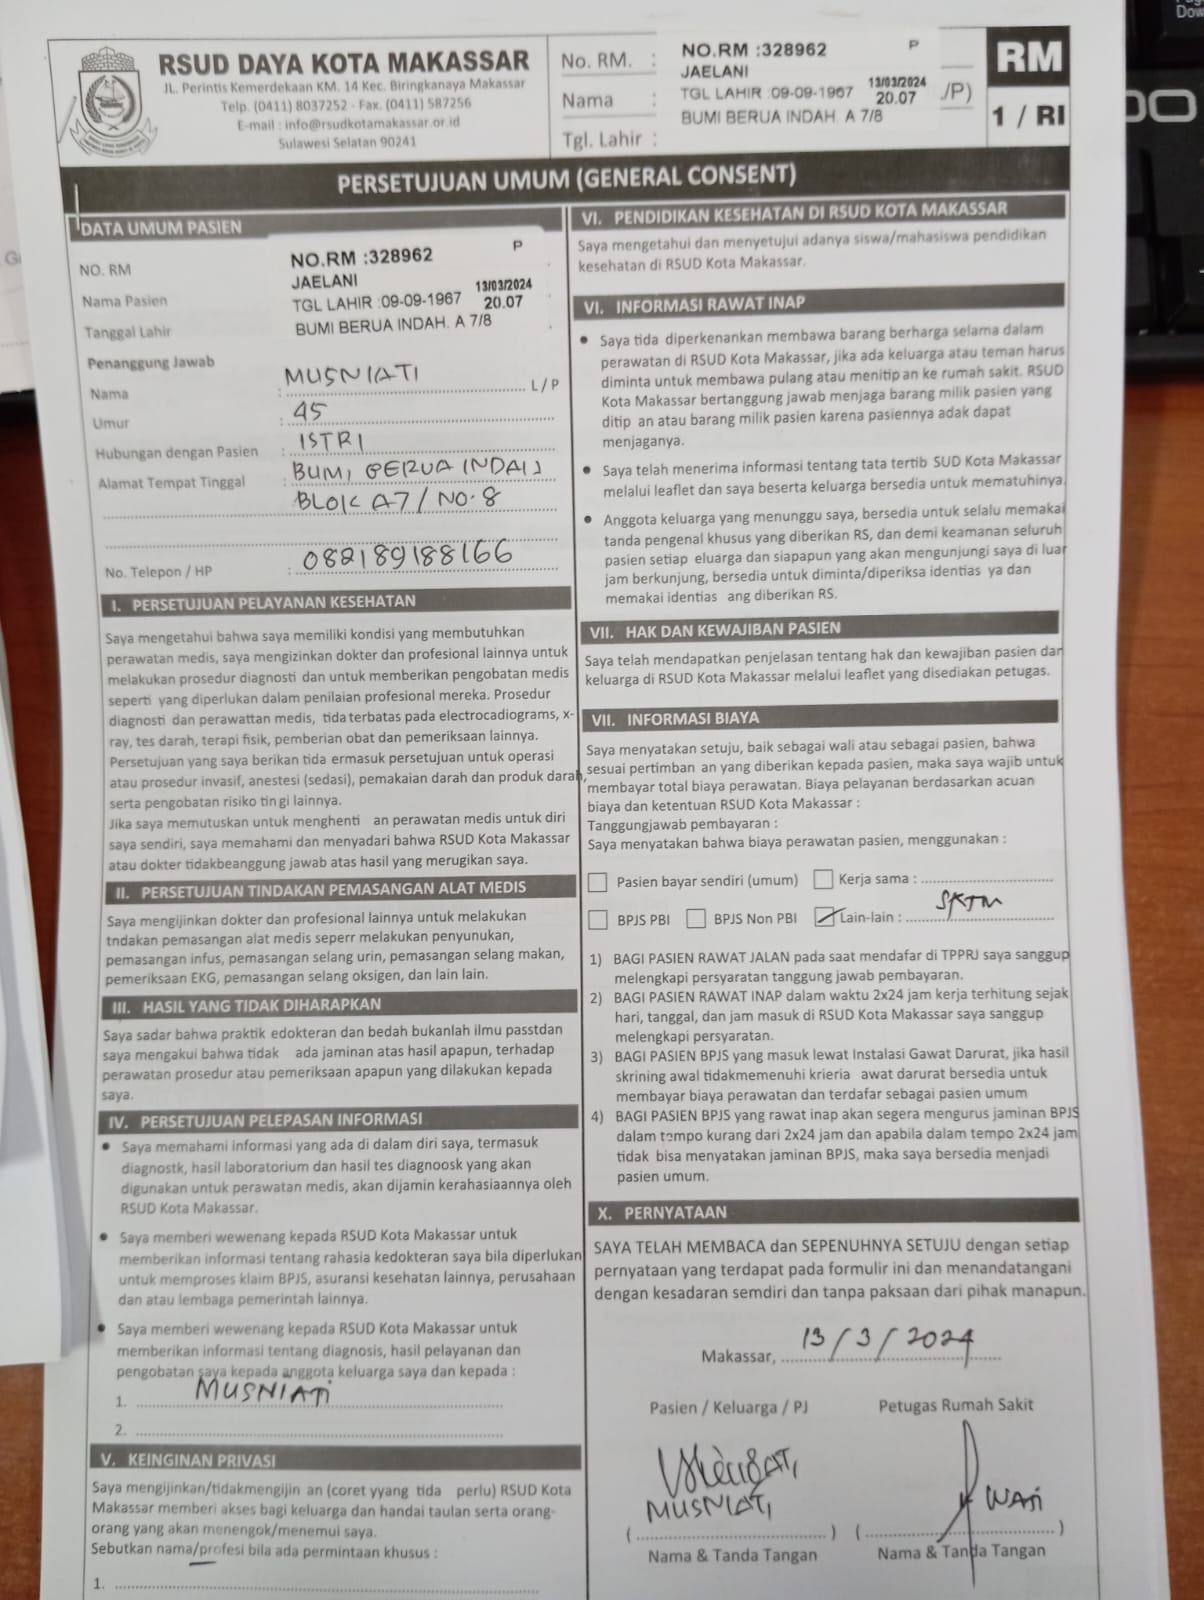 RSUD DAYA KOTA MAKASSAR
JL. Perintis Kemerdekaan KM. 14 Kec. Biringkanaya Makassar
Telp. (0411) 8037252 - Fax. (0411) 587256
E-mail : info@rsudkotamakassar.or.id
Sulawesi Selatan 90241
No. RM. :
Nama :
Tgl. Lahir :
NO.RM :328962 P
JAELANI
TGL LAHIR :09-09-1967 13/03/2024 20.07
BUMI BERUA INDAH. A 7/8
/P)
RM
1 / RI
PERSETUJUAN UMUM (GENERAL CONSENT)
DATA UMUM PASIEN
NO. RM
Nama Pasien
Tanggal Lahir
NO.RM :328962 P
JAELANI
TGL LAHIR :09-09-1967 13/03/2024 20.07
BUMI BERUA INDAH. A 7/8
Penanggung Jawab
Nama : MUSNIATI L / P
Umur : 45
Hubungan dengan Pasien : ISTRI
Alamat Tempat Tinggal : BUMI BERUA INDAH
BLOK A7 / NO. 8
No. Telepon / HP : 082189188166
I. PERSETUJUAN PELAYANAN KESEHATAN
Saya mengetahui bahwa saya memiliki kondisi yang membutuhkan
perawatan medis, saya mengizinkan dokter dan profesional lainnya untuk
melakukan prosedur diagnosti dan untuk memberikan pengobatan medis
seperti yang diperlukan dalam penilaian profesional mereka. Prosedur
diagnosti dan perawattan medis, tida terbatas pada electrocadiograms, x-
ray, tes darah, terapi fisik, pemberian obat dan pemeriksaan lainnya.
Persetujuan yang saya berikan tida ermasuk persetujuan untuk operasi
atau prosedur invasif, anestesi (sedasi), pemakaian darah dan produk darah,
serta pengobatan risiko tin gi lainnya.
Jika saya memutuskan untuk menghenti an perawatan medis untuk diri
saya sendiri, saya memahami dan menyadari bahwa RSUD Kota Makassar
atau dokter tidakbeanggung jawab atas hasil yang merugikan saya.
II. PERSETUJUAN TINDAKAN PEMASANGAN ALAT MEDIS
Saya mengijinkan dokter dan profesional lainnya untuk melakukan
tndakan pemasangan alat medis seperr melakukan penyunukan,
pemasangan infus, pemasangan selang urin, pemasangan selang makan,
pemeriksaan EKG, pemasangan selang oksigen, dan lain lain.
III. HASIL YANG TIDAK DIHARAPKAN
Saya sadar bahwa praktik edokteran dan bedah bukanlah ilmu passtdan
saya mengakui bahwa tidak ada jaminan atas hasil apapun, terhadap
perawatan prosedur atau pemeriksaan apapun yang dilakukan kepada
saya.
IV. PERSETUJUAN PELEPASAN INFORMASI
• Saya memahami informasi yang ada di dalam diri saya, termasuk
diagnostk, hasil laboratorium dan hasil tes diagnoosk yang akan
digunakan untuk perawatan medis, akan dijamin kerahasiaannya oleh
RSUD Kota Makassar.
• Saya memberi wewenang kepada RSUD Kota Makassar untuk
memberikan informasi tentang rahasia kedokteran saya bila diperlukan
untuk memproses klaim BPJS, asuransi kesehatan lainnya, perusahaan
dan atau lembaga pemerintah lainnya.
• Saya memberi wewenang kepada RSUD Kota Makassar untuk
memberikan informasi tentang diagnosis, hasil pelayanan dan
pengobatan saya kepada anggota keluarga saya dan kepada :
1. MUSNIATI
2.
V. KEINGINAN PRIVASI
Saya mengijinkan/tidakmengijin an (coret yyang tida perlu) RSUD Kota
Makassar memberi akses bagi keluarga dan handai taulan serta orang-
orang yang akan menengok/menemui saya.
Sebutkan nama/profesi bila ada permintaan khusus :
1.
VI. PENDIDIKAN KESEHATAN DI RSUD KOTA MAKASSAR
Saya mengetahui dan menyetujui adanya siswa/mahasiswa pendidikan
kesehatan di RSUD Kota Makassar.
VI. INFORMASI RAWAT INAP
• Saya tida diperkenankan membawa barang berharga selama dalam
perawatan di RSUD Kota Makassar, jika ada keluarga atau teman harus
diminta untuk membawa pulang atau menitip an ke rumah sakit. RSUD
Kota Makassar bertanggung jawab menjaga barang milik pasien yang
ditip an atau barang milik pasien karena pasiennya adak dapat
menjaganya.
• Saya telah menerima informasi tentang tata tertib SUD Kota Makassar
melalui leaflet dan saya beserta keluarga bersedia untuk mematuhinya.
• Anggota keluarga yang menunggu saya, bersedia untuk selalu memakai
tanda pengenal khusus yang diberikan RS, dan demi keamanan seluruh
pasien setiap eluarga dan siapapun yang akan mengunjungi saya di luar
jam berkunjung, bersedia untuk diminta/diperiksa identias ya dan
memakai identias ang diberikan RS.
VII. HAK DAN KEWAJIBAN PASIEN
Saya telah mendapatkan penjelasan tentang hak dan kewajiban pasien dan
keluarga di RSUD Kota Makassar melalui leaflet yang disediakan petugas.
VII. INFORMASI BIAYA
Saya menyatakan setuju, baik sebagai wali atau sebagai pasien, bahwa
sesuai pertimban an yang diberikan kepada pasien, maka saya wajib untuk
membayar total biaya perawatan. Biaya pelayanan berdasarkan acuan
biaya dan ketentuan RSUD Kota Makassar :
Tanggungjawab pembayaran :
Saya menyatakan bahwa biaya perawatan pasien, menggunakan :
Pasien bayar sendiri (umum) Kerja sama :
BPJS PBI BPJS Non PBI Lain-lain : SKTM
1) BAGI PASIEN RAWAT JALAN pada saat mendafar di TPPRJ saya sanggup
melengkapi persyaratan tanggung jawab pembayaran.
2) BAGI PASIEN RAWAT INAP dalam waktu 2x24 jam kerja terhitung sejak
hari, tanggal, dan jam masuk di RSUD Kota Makassar saya sanggup
melengkapi persyaratan.
3) BAGI PASIEN BPJS yang masuk lewat Instalasi Gawat Darurat, jika hasil
skrining awal tidakmemenuhi krieria awat darurat bersedia untuk
membayar biaya perawatan dan terdafar sebagai pasien umum
4) BAGI PASIEN BPJS yang rawat inap akan segera mengurus jaminan BPJS
dalam tempo kurang dari 2x24 jam dan apabila dalam tempo 2x24 jam
tidak bisa menyatakan jaminan BPJS, maka saya bersedia menjadi
pasien umum.
X. PERNYATAAN
SAYA TELAH MEMBACA dan SEPENUHNYA SETUJU dengan setiap
pernyataan yang terdapat pada formulir ini dan menandatangani
dengan kesadaran semdiri dan tanpa paksaan dari pihak manapun.
Makassar, 13/3/2024
Pasien / Keluarga / PJ Petugas Rumah Sakit
MUSNIATI
( ) ( )
Nama & Tanda Tangan Nama & Tanda Tangan